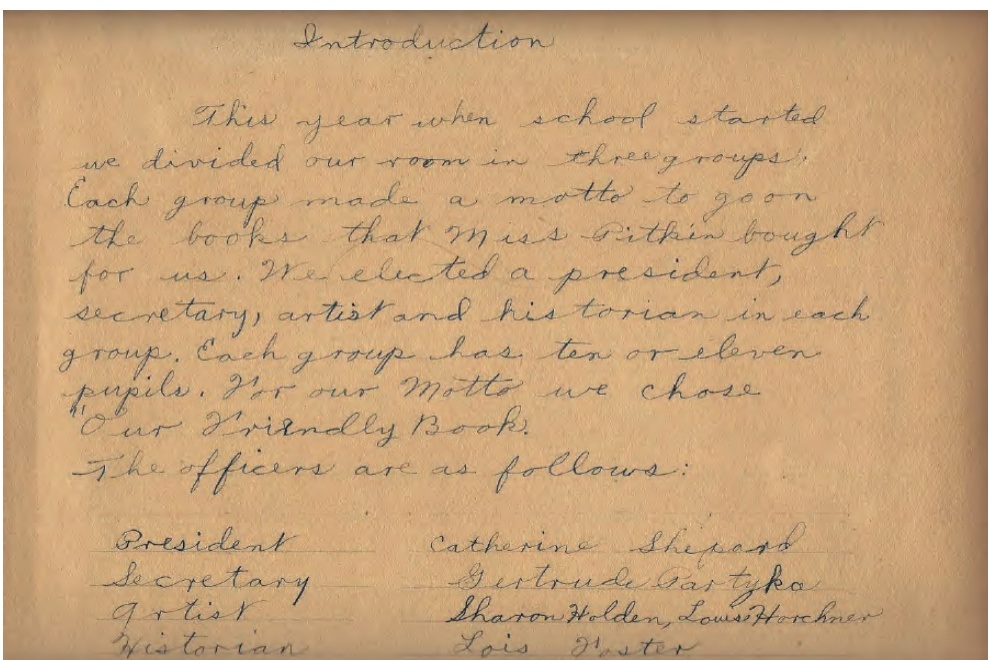 Introduction
This year when school started
we divided our room in three groups.
Each group made a motto to go on
the books that Miss Pitkin bought
for us. We elected a president,
secretary, artist and historian in each
group. Each group has ten or eleven
pupils. For our Motto we chose
"Our Friendly Book.
The officers are as follows:
President Catherine Shepard
Secretary Gertrude Partyka
Artist Sharon Holden, Louis Horchner
Historian Lois Foster